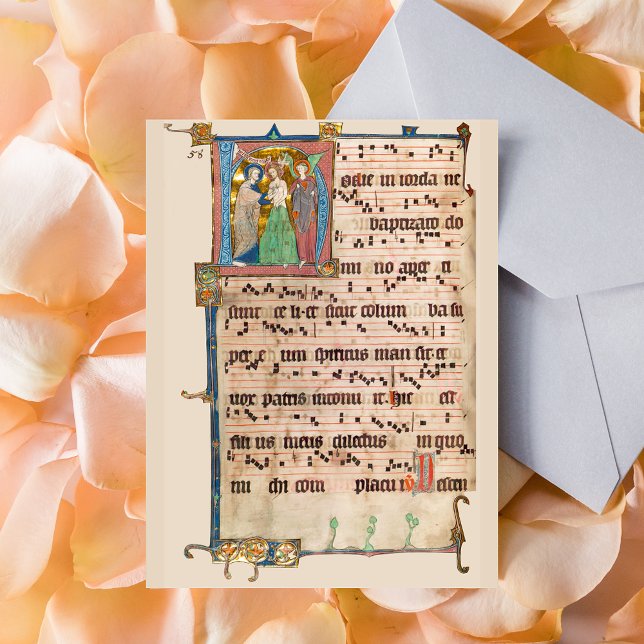 58
odie in iorda ne
baptizato do
mi no aper ti
sunt ce li et sicut colum ba su
per e um spiritus man sit et
vox patris intonu it hic est
fili us meus dilectus in quo
mi chi com placu it
Descen